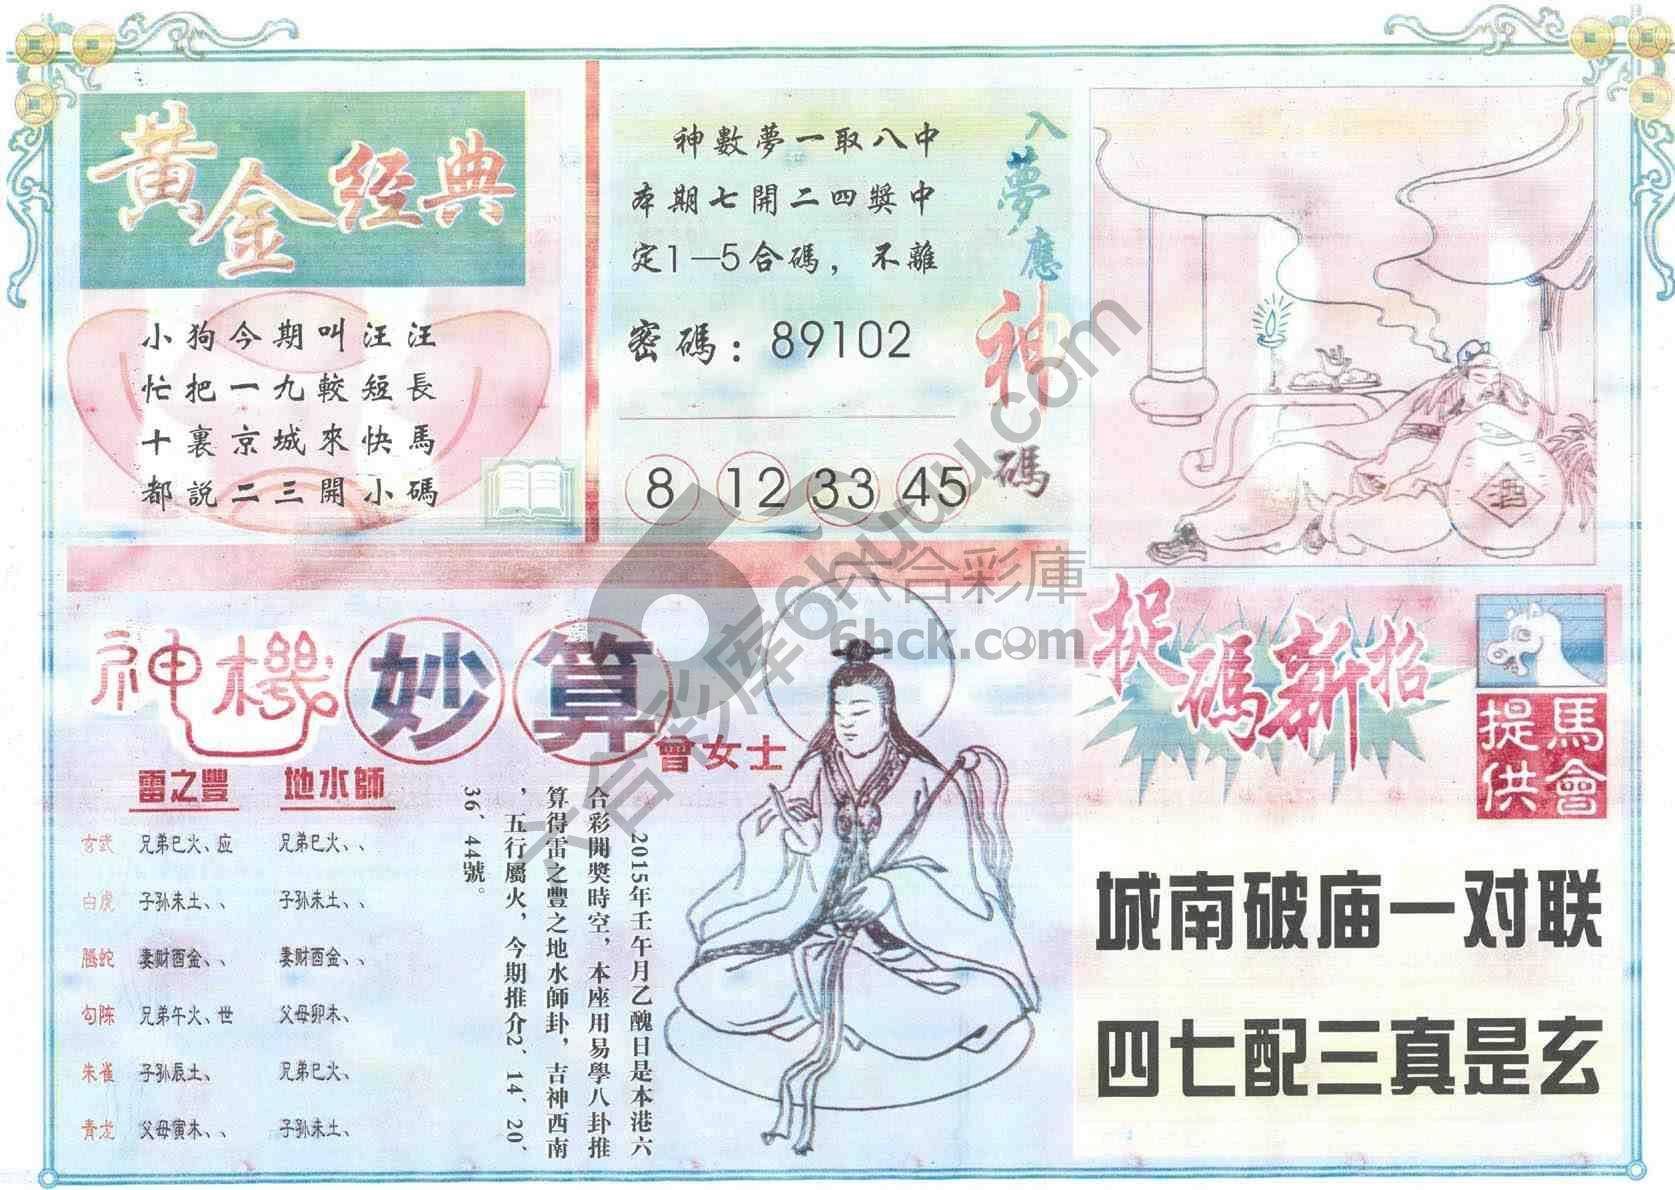 黃金經典
小狗今期叫汪汪
忙把一九較短長
十裏京城來快馬
都説二三開小碼
入夢應神碼
神數夢一取八中
本期七開二四獎中
定1—5合碼，不離
密碼：89102
8 12 33 45
酒
神機妙算
曾女士
雷之豐 地水師
玄武 兄弟巳火、应 兄弟巳火、、
白虎 子孙未土、、 子孙未土、、
螣蛇 妻财酉金、、 妻财酉金、、
勾陈 兄弟午火、世 父母卯木、
朱雀 子孙辰土、 兄弟巳火、
青龙 父母寅木、、 子孙未土、
2015年壬午月乙醜日是本港六
合彩開獎時空，本座用易學八卦推
算得雷之豐之地水師卦，吉神西南
，五行屬火，今期推介2、14、20、
36、44號。
捉碼新招
馬會提供
城南破庙一对联
四七配三真是玄
六合彩库6hkuu.com
六合彩庫
6hck.com